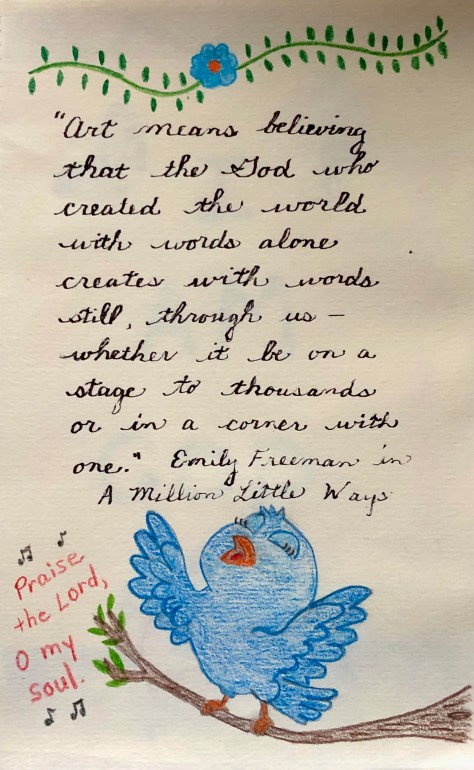 "Art means believing
that the God who
created the world
with words alone
creates with words
still, through us –
whether it be on a
stage to thousands
or in a corner with
one." Emily Freeman in
A Million Little Ways
Praise
the Lord,
O my
soul.